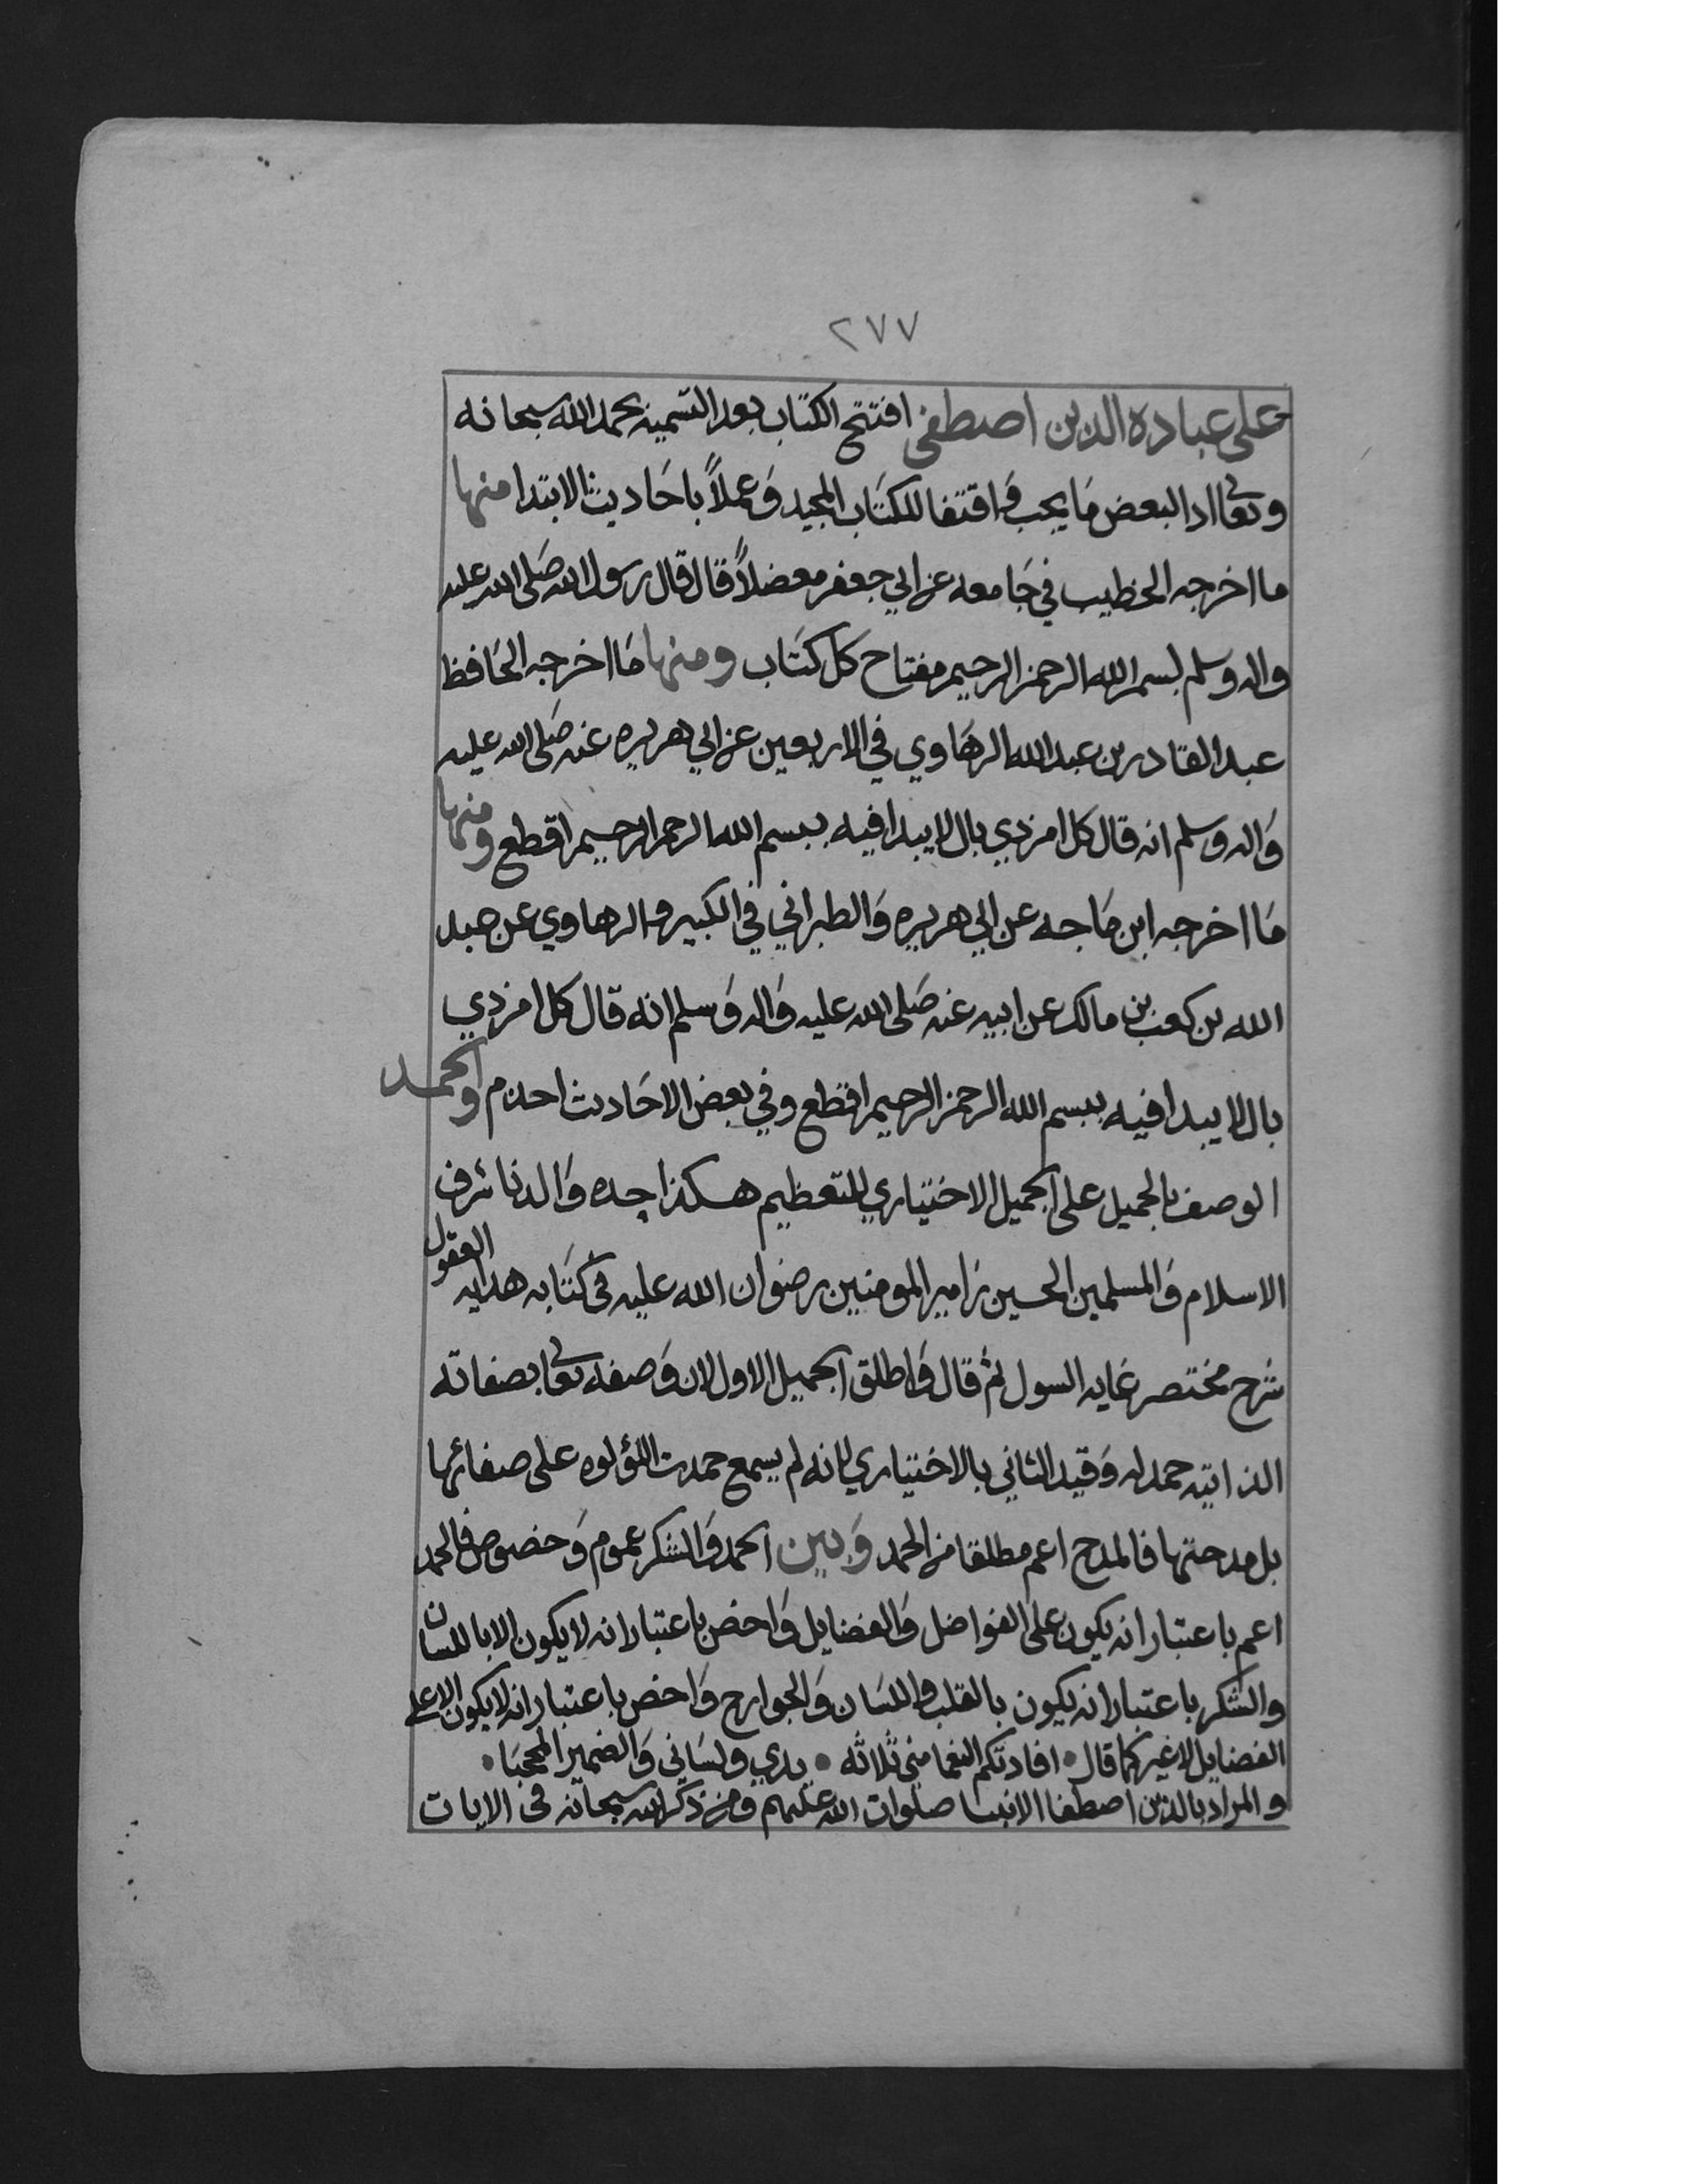 ٢٧٧
على عباده الذين اصطفى افتتح الكتاب بعد التسميه بحمد الله سبحانه
وتعالى ادا البعض مَا يجب وَاقتفا للكتَاب المجيد وَعملاً باحَاديث الابتدا منها
ما اخرجه الخطيب في جَامعه عن ابي جعفر معضلاً قال قال رسول الله صَلى الله عليه
واله وسلم بسم الله الرحمن الرحيم مفتاح كل كتَاب ومنها مَا اخرجه الحَافظ
عبد القادر بن عبد الله الرهَاوي في الاربعين عن ابي هريره عنه صَلى الله عليه
وَاله وسلم انه قال كل امر ذي بال لا يبدا فيه ببسم الله الرحمن الرحيم اقطع ومنها
مَا اخرجه ابن مَاجه عن ابي هريره وَالطبراني في الكبير والرهاوي عن عبد
الله بن كعب بن مالك عن ابيه عنه صَلى الله عليه وَاله وَسلم انه قال كل امر ذي
بال لا يبدا فيه ببسم الله الرحمن الرحيم اقطع وفي بعض الاحَاديث اجذم والحمد
الوصف بالجميل على الجميل الاختياري للتعظيم هكذا حده وَالدنا شرف
الاسلام وَالمسلمين الحسين بن امير المومنين رضوان الله عليه في كتَابه هدايه العقول
شرح مختصر غايه السول ثم قال وَاطلق الجميل الاول لان وَصفه تعالى بصفاته
الذاتيه حمد له وَقيد الثاني بالاختياري لانه لم يسمع حمدت اللؤلوه على صفائها
بل مدحتها فالمدح اعم مطلقا من الحمد وَبين الحمد وَالشكر عموم وَخصوص فالحمد
اعم باعتبار انه يكون على الفواضل وَالفضايل وَاخص باعتبار انه لا يكون الا باللسان
والشكر باعتبار انه يكون بالقلب واللسَان وَالجوارح وَاخص باعتبار انه لا يكون الا على
الفضايل لا غير كما قال • افادتكم النعما مني ثلاثه • يدي ولسَاني وَالضمير المحجبَا •
والمراد بالذين اصطفا الانبيا صلوات الله عليهم ومن ذكر الله سبحانه في الايات